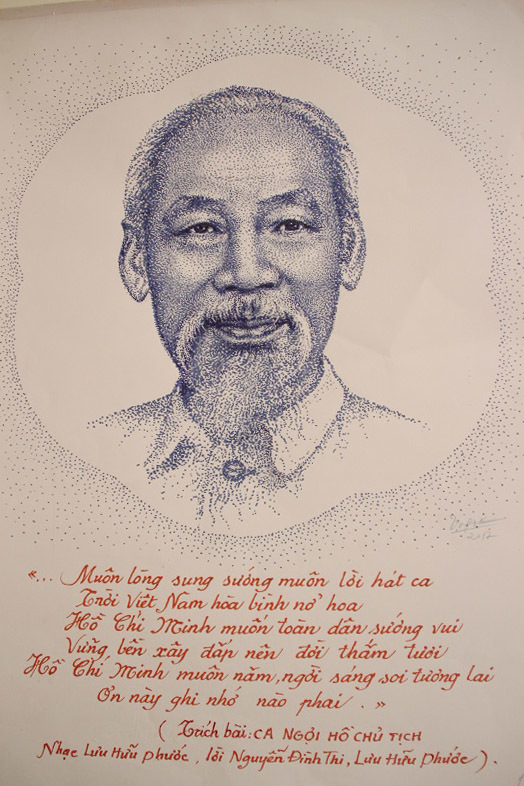 2017
«... Muôn lòng sung sướng muôn lời hát ca
Trời Việt Nam hòa bình nở hoa
Hồ Chí Minh muốn toàn dân sướng vui
Vững bền xây đắp nên đời thắm tươi
Hồ Chí Minh muôn năm, ngời sáng soi tương lai
Ơn này ghi nhớ nào phai. »
( Trích bài: CA NGỢI HỒ CHỦ TỊCH
Nhạc Lưu Hữu Phước, lời Nguyễn Đình Thi, Lưu Hữu Phước ).